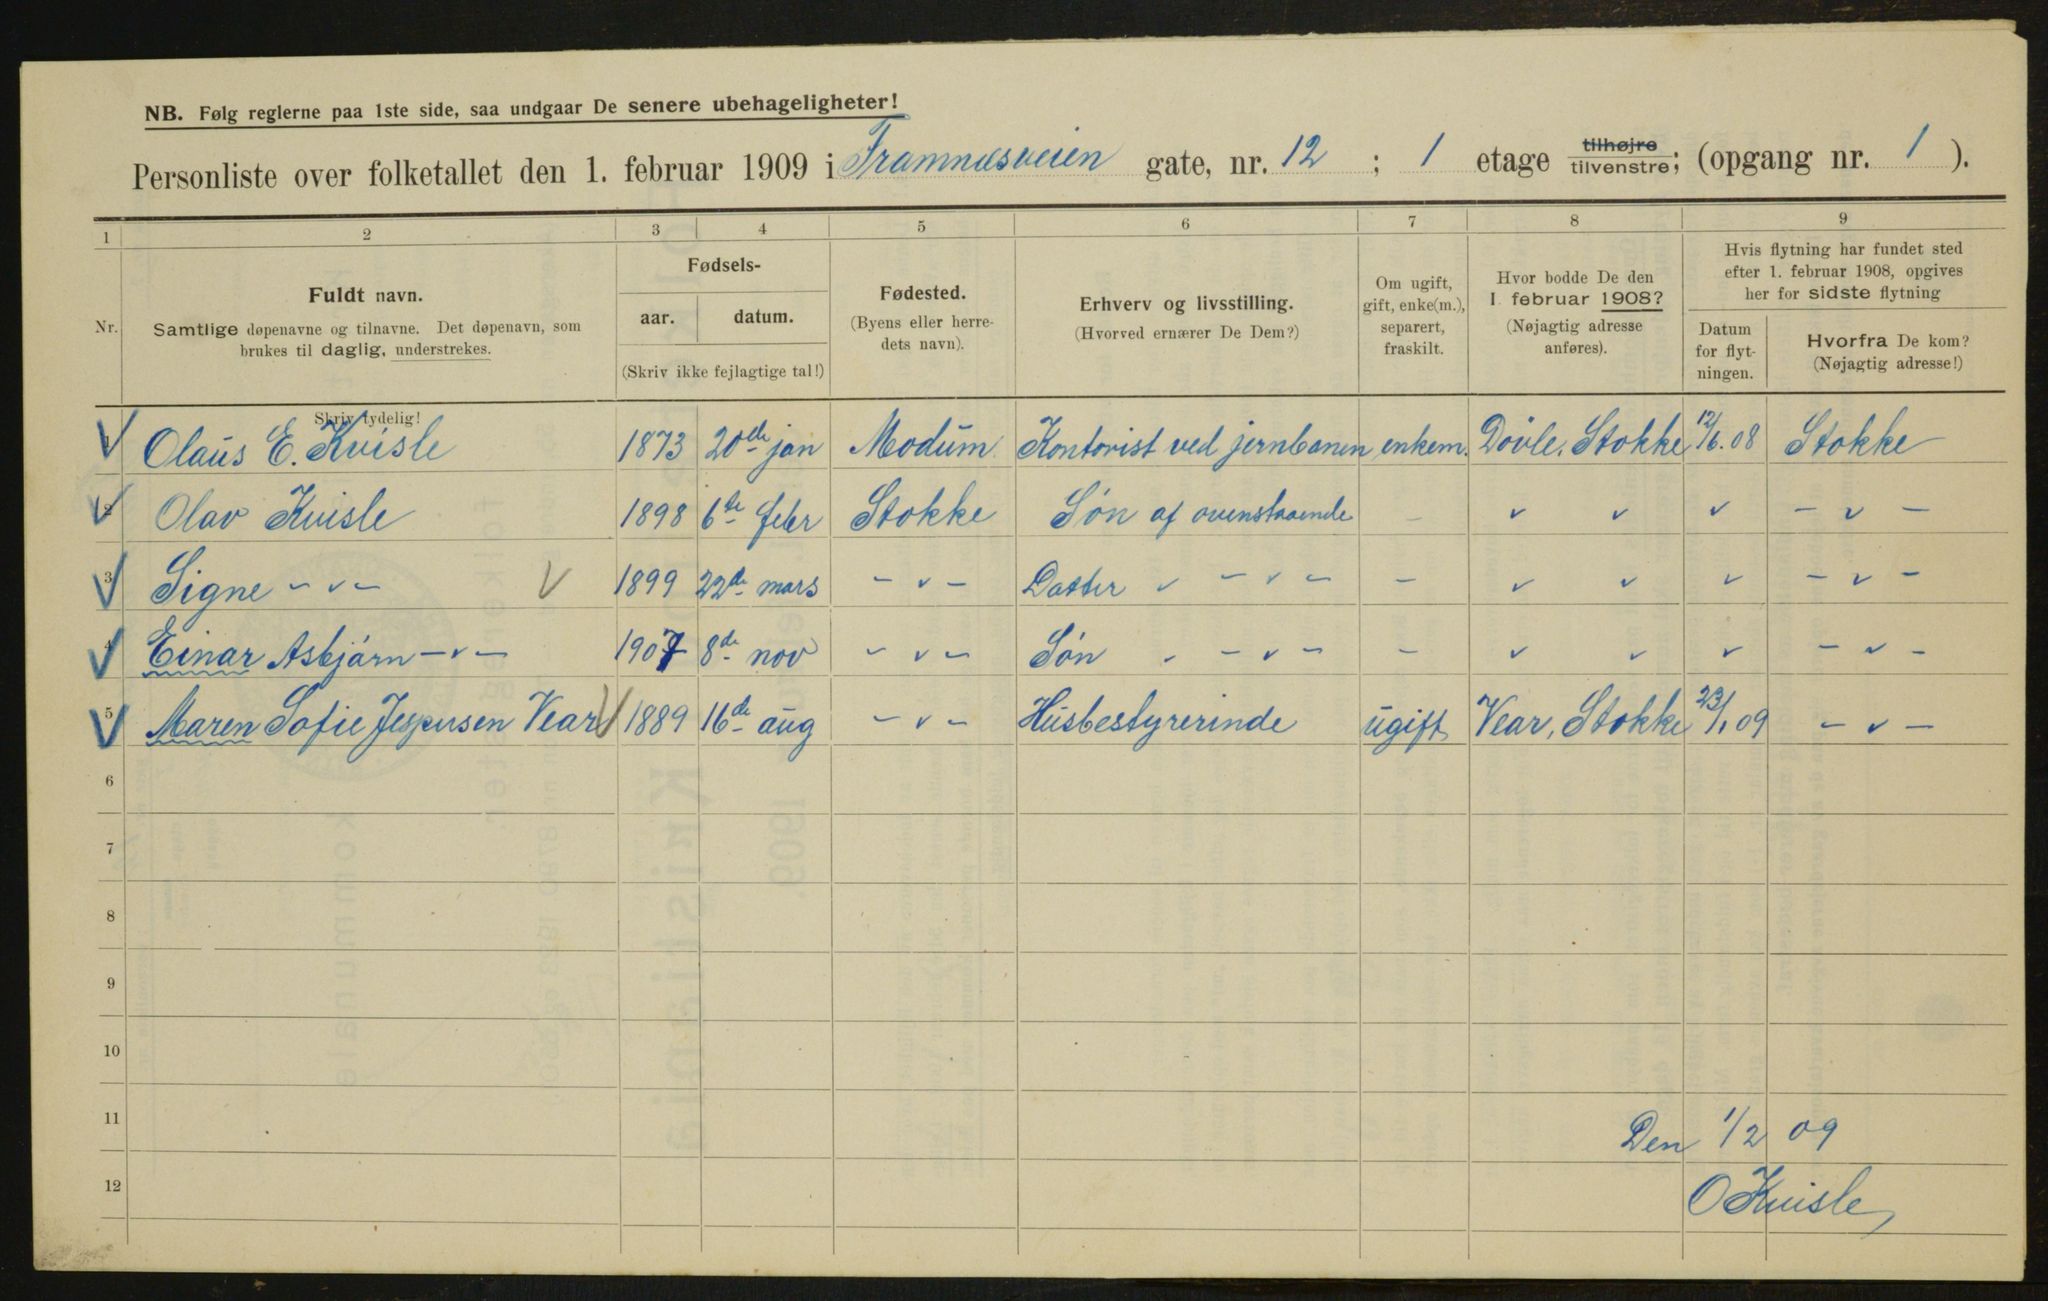 NB. Følg reglerne paa 1ste side, saa undgaar De senere ubehageligheter!
Personliste over folketallet den 1. februar 1909 i Framnæsveien gate, nr. 12 ; 1 etage tilhøjre tilvenstre; (opgang nr. 1 ).
1 2 3 4 5 6 7 8 9
Nr. Fuldt navn. Samtlige døpenavne og tilnavne. Det døpenavn, som brukes til daglig, understrekes. Skriv tydelig!
Fødsels- aar. datum. (Skriv ikke fejlagtige tal!)
Fødested. (Byens eller herredets navn).
Erhverv og livsstilling. (Hvorved ernærer De Dem?)
Om ugift, gift, enke(m.), separert, fraskilt.
Hvor bodde De den 1. februar 1908? (Nøjagtig adresse anføres).
Hvis flytning har fundet sted efter 1. februar 1908, opgives her for sidste flytning
Datum for flytningen. Hvorfra De kom? (Nøjagtig adresse!)
Olaus E. Kvisle 1873 20de jan Modum Kontorist ved jernbanen enkem. Dovle, Stokke 12/6. 08 Stokke
2 Olav Kvisle 1898 6te febr Stokke Søn af ovenstaaende – " " " – " –
3 Signe – " – 1899 22de mars – " – Datter " – " – – " " " – " –
4 Einar Asbjørn – " – 1907 8de nov – " – Søn " – " – – " " " – " –
5 Maren Sofie Jespersen Vear 1889 16de aug – " – Husbestyrerinde ugift Vear, Stokke 23/1 09 – " –
6
7
8
9
10
11
12
Den 1/2 09
O Kvisle